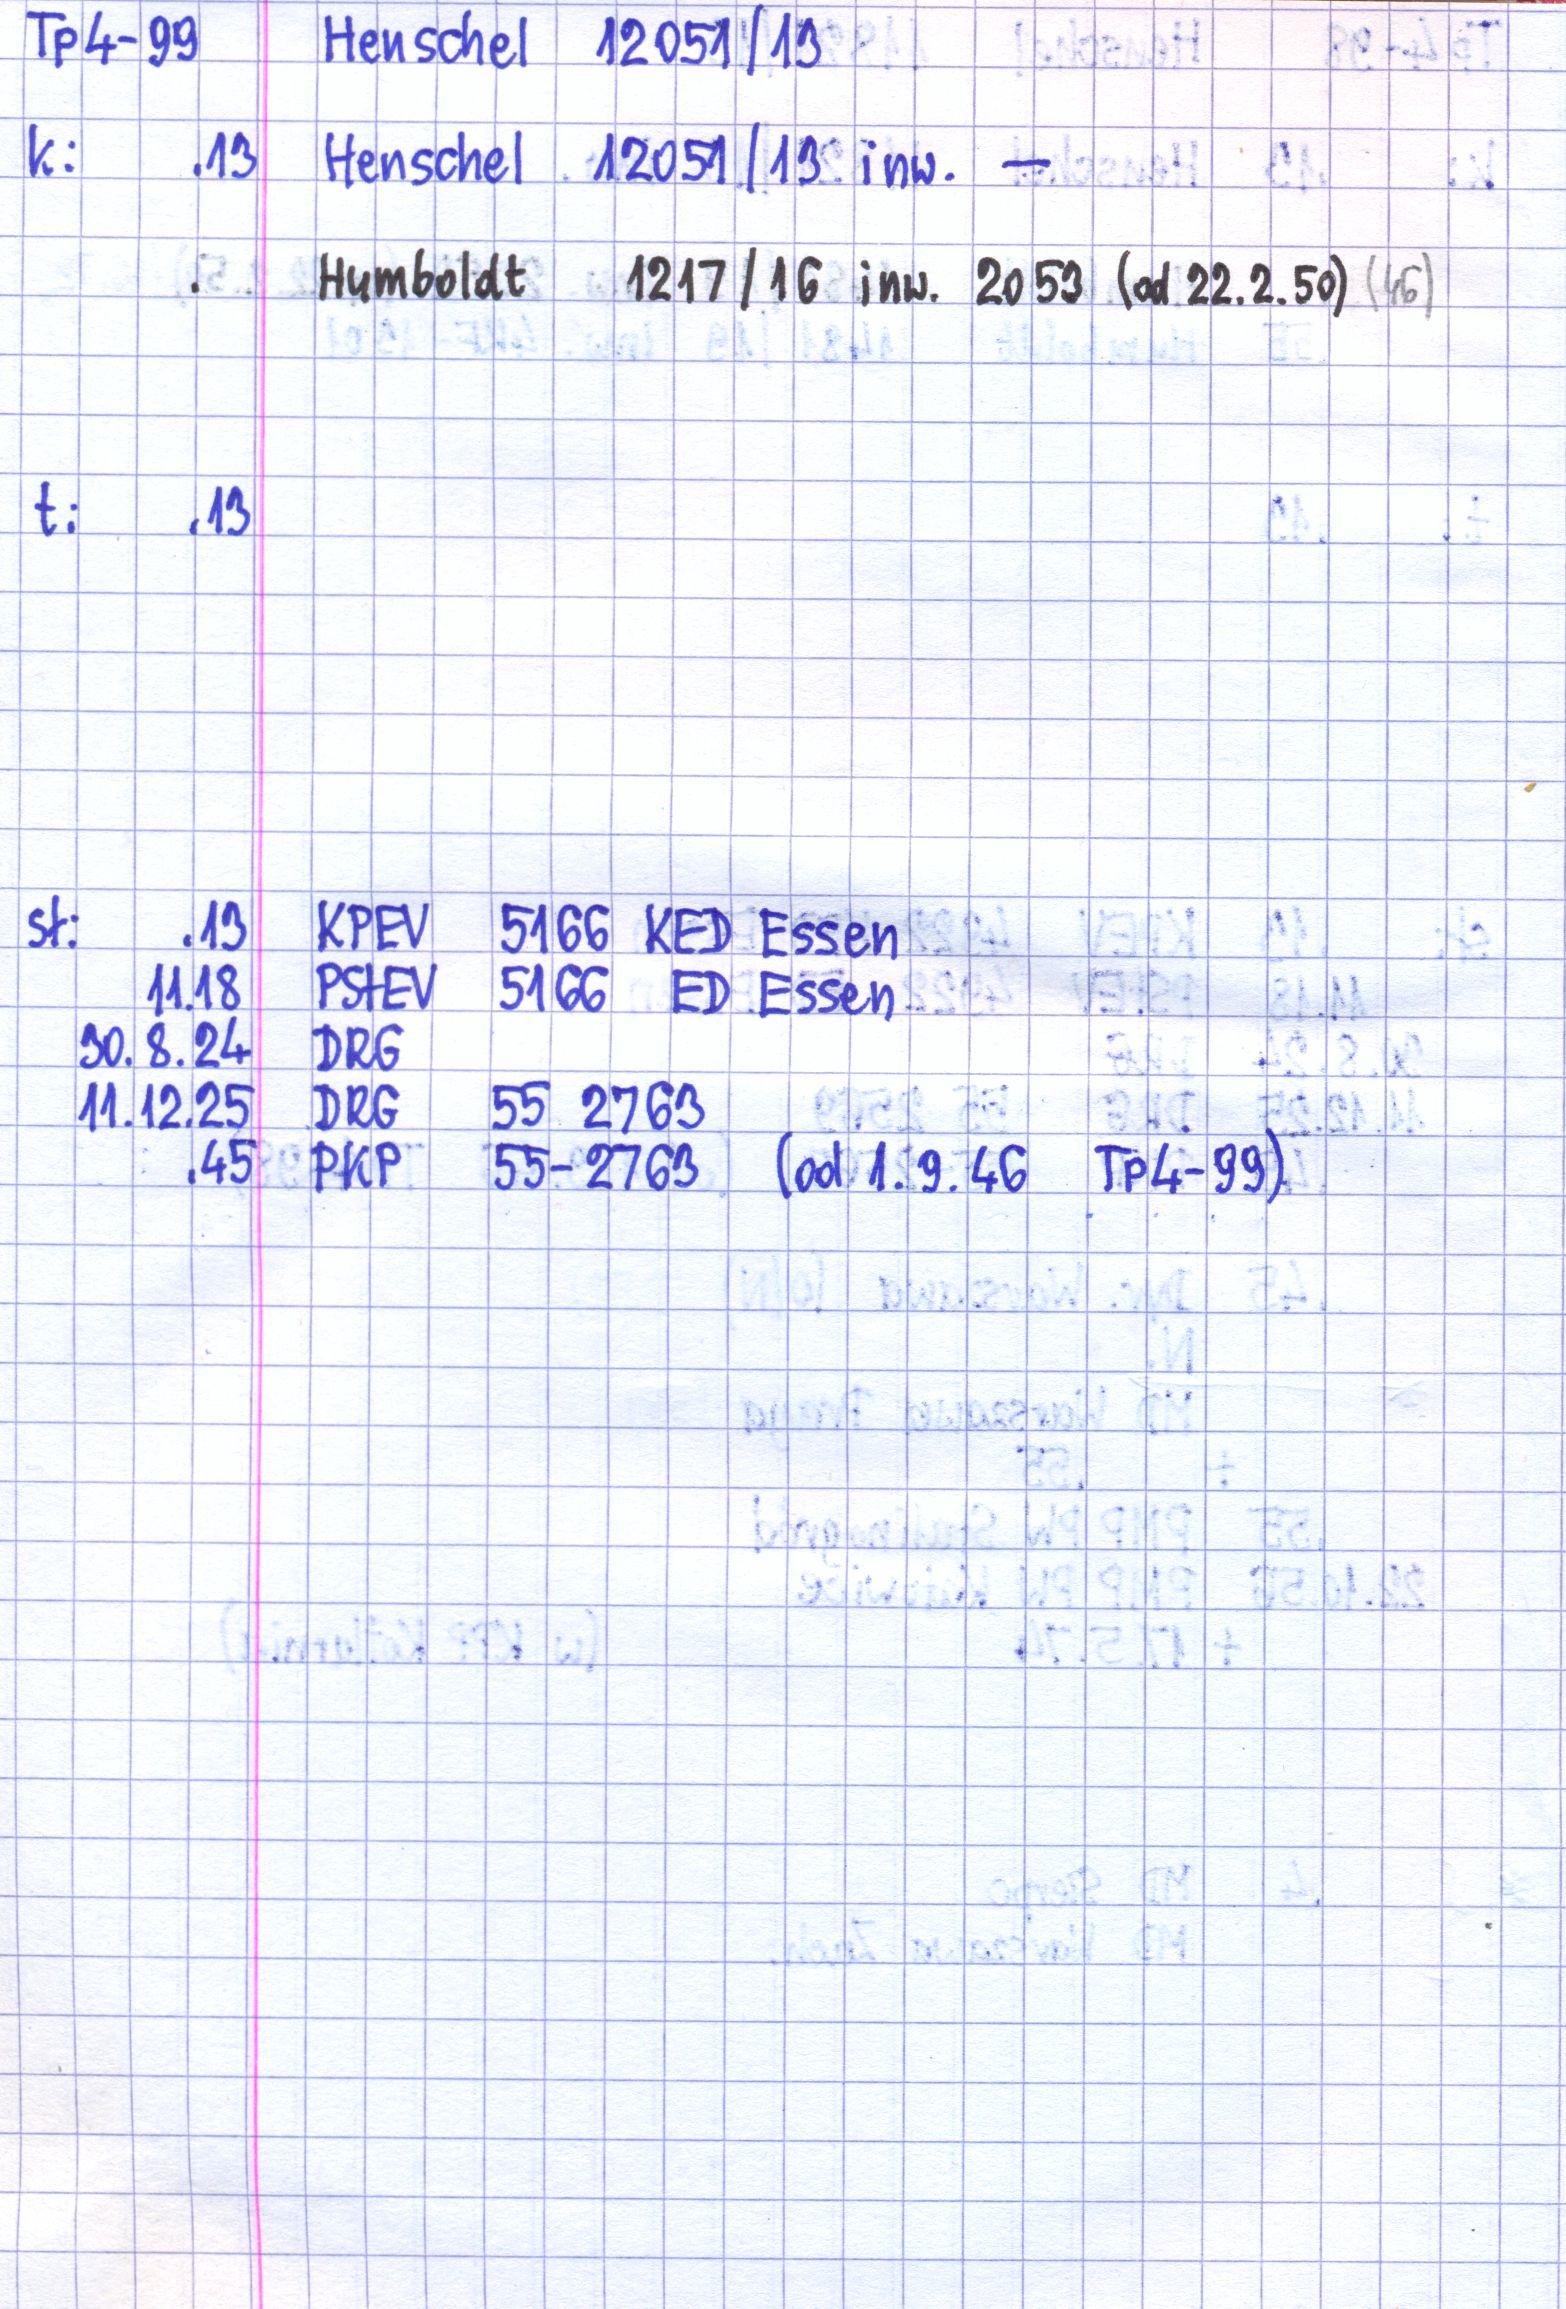 Tp4-99 Henschel 12051/13
k: .13 Henschel 12051/13 inw. —
. Humboldt 1217/16 inw. 2053 (od 22.2.50) (46)
t: .13
st: .13 KPEV 5166 KED Essen
11.18 PStEV 5166 ED Essen
30.8.24 DRG
11.12.25 DRG 55 2763
.45 PKP 55-2763 (od 1.9.46 Tp4-99)